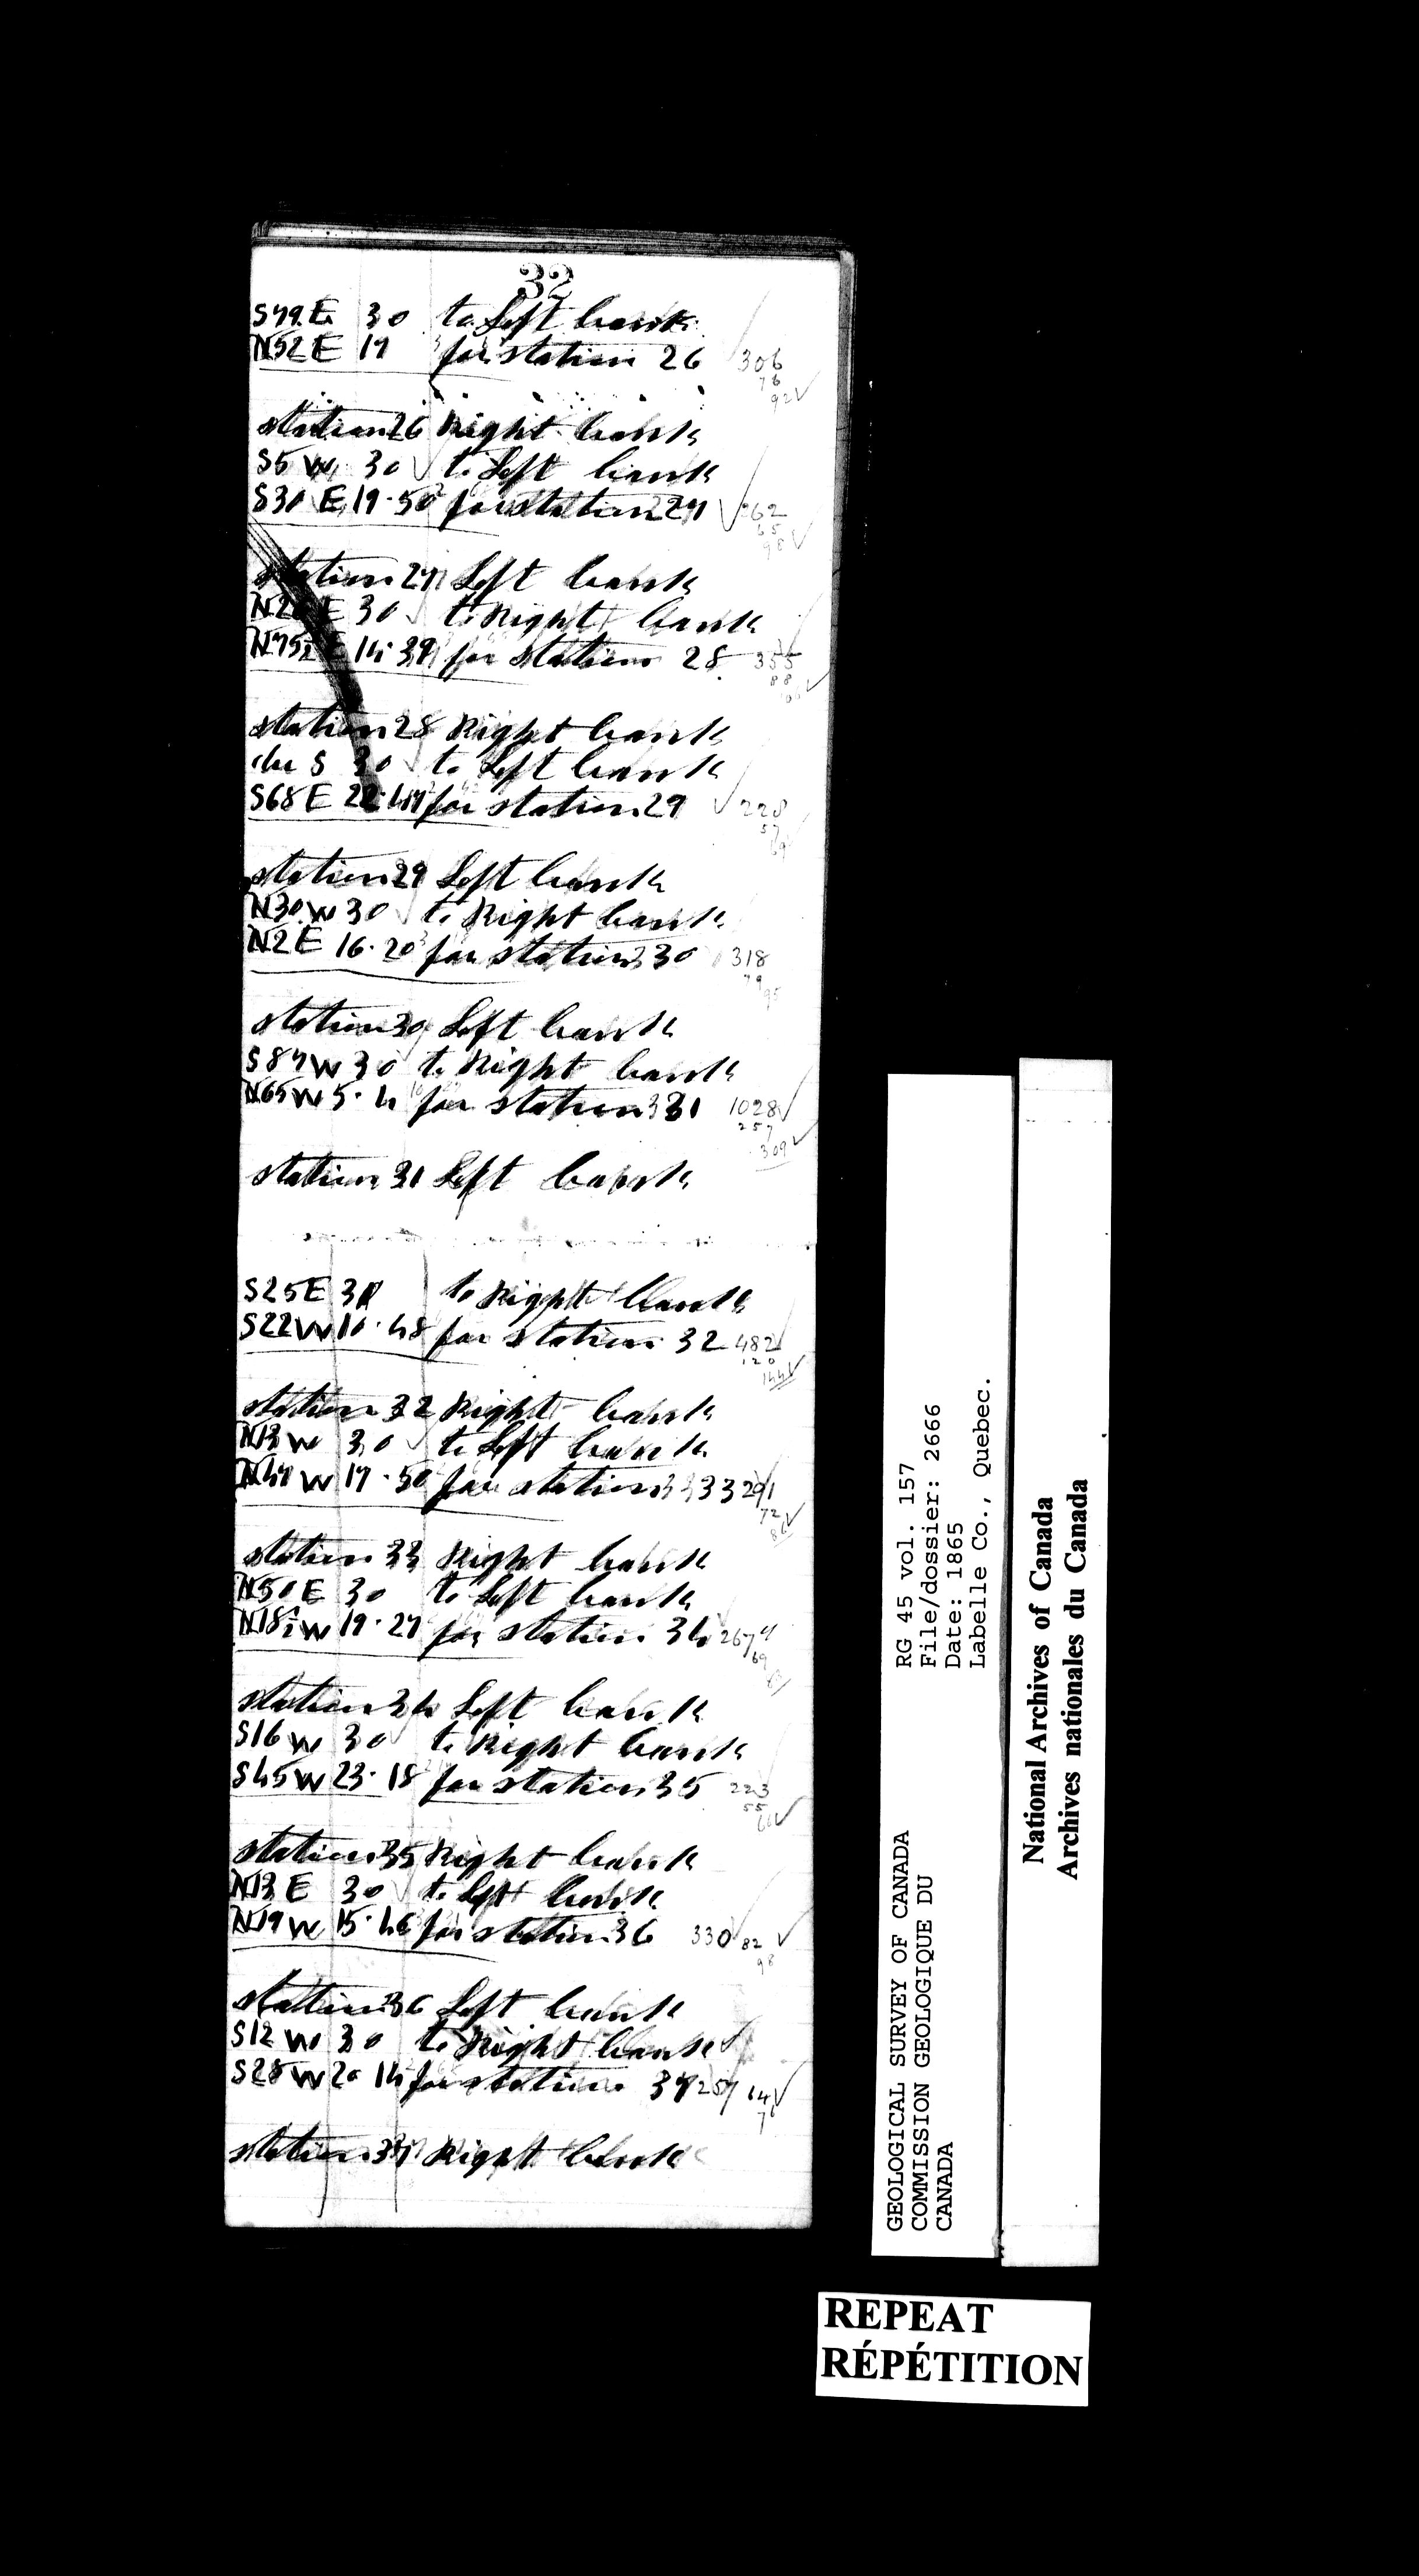 32
S79E 30 to Left bank
N52E 17 for station 26 306
76
92
station 26 Right bank
S5W 30 to Left bank
S30E 19·50 for station 27 262
65
98
station 27 Left bank
E 30 to Right bank
14·39 for station 28 355
88
station 28 Right bank
due S 30 to Left bank
S68E 22·47 for station 29 228
57
69
station 29 Left bank
N30W 30 to Right bank
N2E 16·20 for station 30 318
79
95
station 30 Left bank
S87W 30 to Right bank
N65W 5·4 for station 31 1028
257
309
station 31 Left bank
S25E 30 to Right bank
S22W 10·48 for station 32 482
120
144
station 32 Right bank
N13W 30 to Left bank
N47W 17·50 for station 33 291
72
86
station 33 Right bank
N50E 30 to Left bank
N18½W 19·27 for station 34 267
69
station 34 Left bank
S16W 30 to Right bank
S45W 23·18 for station 35 223
55
66
station 35 Right bank
N13E 30 to Left bank
N19W 15·46 for station 36 330 82
98
station 36 Left bank
S12W 30 to Right bank
S28W 20 14 for station 37 257 64
76
station 37 Right bank
GEOLOGICAL SURVEY OF CANADA
COMMISSION GEOLOGIQUE DU
CANADA
RG 45 vol. 157
File/dossier: 2666
Date: 1865
Labelle Co., Quebec.
National Archives of Canada
Archives nationales du Canada
REPEAT
RÉPÉTITION